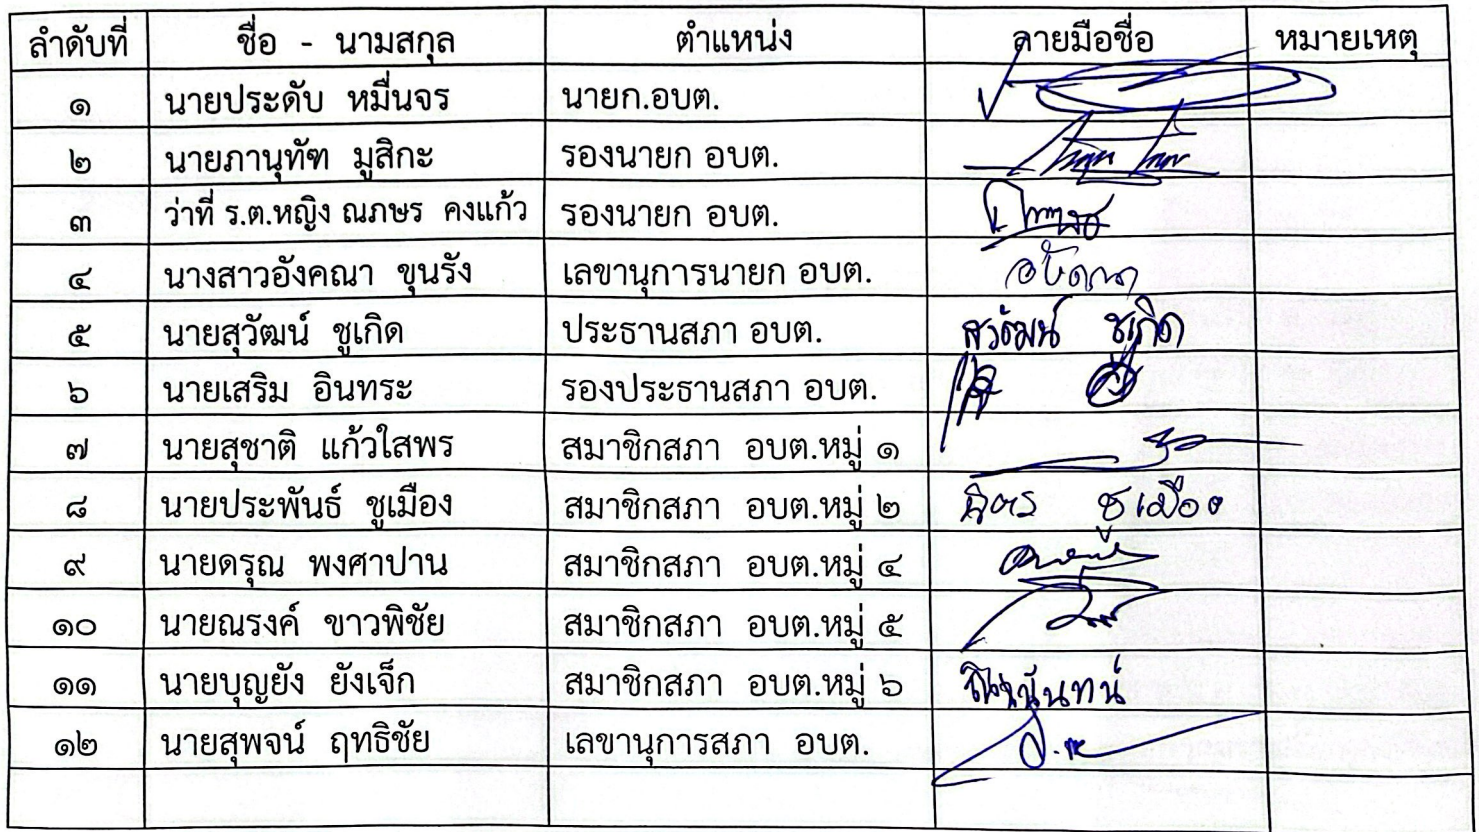 ลำดับที่ ชื่อ - นามสกุล ตำแหน่ง ลายมือชื่อ หมายเหตุ
๑ นายประดับ หมื่นจร นายก.อบต.
๒ นายภานุทัฑ มูสิกะ รองนายก อบต.
๓ ว่าที่ ร.ต.หญิง ณภษร คงแก้ว รองนายก อบต.
๔ นางสาวอังคณา ขุนรัง เลขานุการนายก อบต. อังคณา
๕ นายสุวัฒน์ ชูเกิด ประธานสภา อบต. สุวัฒน์ ชูเกิด
๖ นายเสริม อินทระ รองประธานสภา อบต.
๗ นายสุชาติ แก้วใสพร สมาชิกสภา อบต.หมู่ ๑
๘ นายประพันธ์ ชูเมือง สมาชิกสภา อบต.หมู่ ๒ ชูเมือง
๙ นายดรุณ พงศาปาน สมาชิกสภา อบต.หมู่ ๔
๑๐ นายณรงค์ ขาวพิชัย สมาชิกสภา อบต.หมู่ ๕
๑๑ นายบุญยัง ยังเจ็ก สมาชิกสภา อบต.หมู่ ๖
๑๒ นายสุพจน์ ฤทธิชัย เลขานุการสภา อบต.